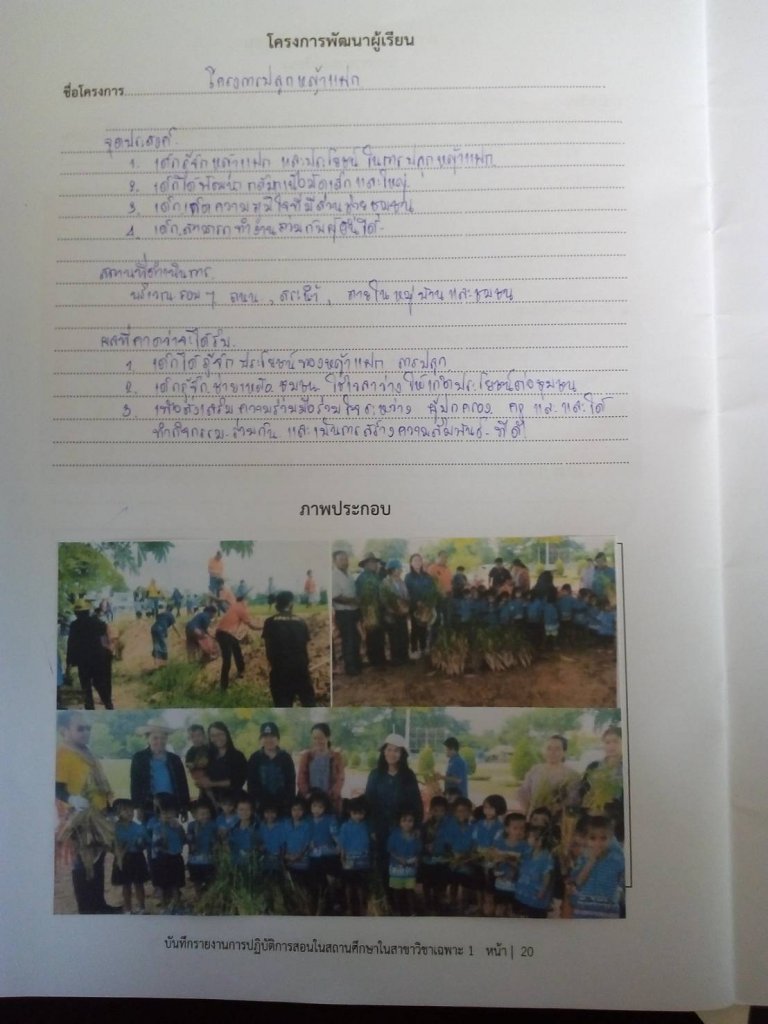 โครงการพัฒนาผู้เรียน
ชื่อโครงการ โครงการปลูกหญ้าแฝก
จุดประสงค์
1. เด็กรู้จักหญ้าแฝก และประโยชน์ในการปลูกหญ้าแฝก
2. เด็กได้พัฒนากล้ามเนื้อมัดเล็กและใหญ่
3. เด็กเกิดความภูมิใจที่มีส่วนช่วยชุมชน
4. เด็กสามารถทำงานร่วมกับผู้อื่นได้
สถานที่ดำเนินการ
บริเวณรอบๆ ถนน, สระน้ำ, ภายในหมู่บ้านและชุมชน
ผลที่คาดว่าจะได้รับ
1. เด็กได้รู้จักประโยชน์ของหญ้าแฝก การปลูก
2. เด็กรู้จักช่วยเหลือชุมชน ใช้เวลาว่างให้เกิดประโยชน์ต่อชุมชน
3. เพื่อส่งเสริมความร่วมมือร่วมใจระหว่าง ผู้ปกครอง ครู และ และได้
ทำกิจกรรมร่วมกัน และเป็นการสร้างความสัมพันธ์ที่ดี
ภาพประกอบ
บันทึกรายงานการปฏิบัติการสอนในสถานศึกษาในสาขาวิชาเฉพาะ 1 หน้า | 20